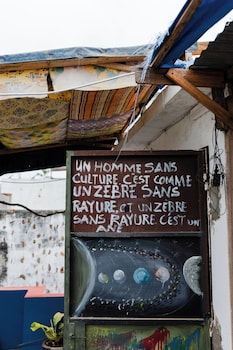 UN HOMME SANS
CULTURE C'EST COMME
UN ZEBRE SANS
RAYURE ET UN ZEBRE
SANS RAYURE C'EST UN